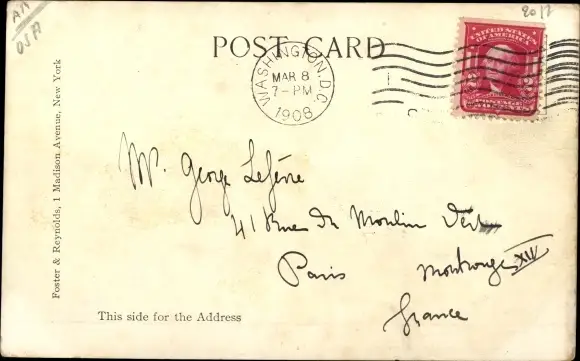 AA
USA
2012
POST CARD
WASHINGTON, D.C.
MAR 8
7-PM
1908
UNITED STATES
OF AMERICA
POSTAGE
Foster & Reynolds, 1 Madison Avenue, New York
Mr. George Lefèvre
41 Rue du Moulin Vert
Paris Montrouge XIV
France
This side for the Address